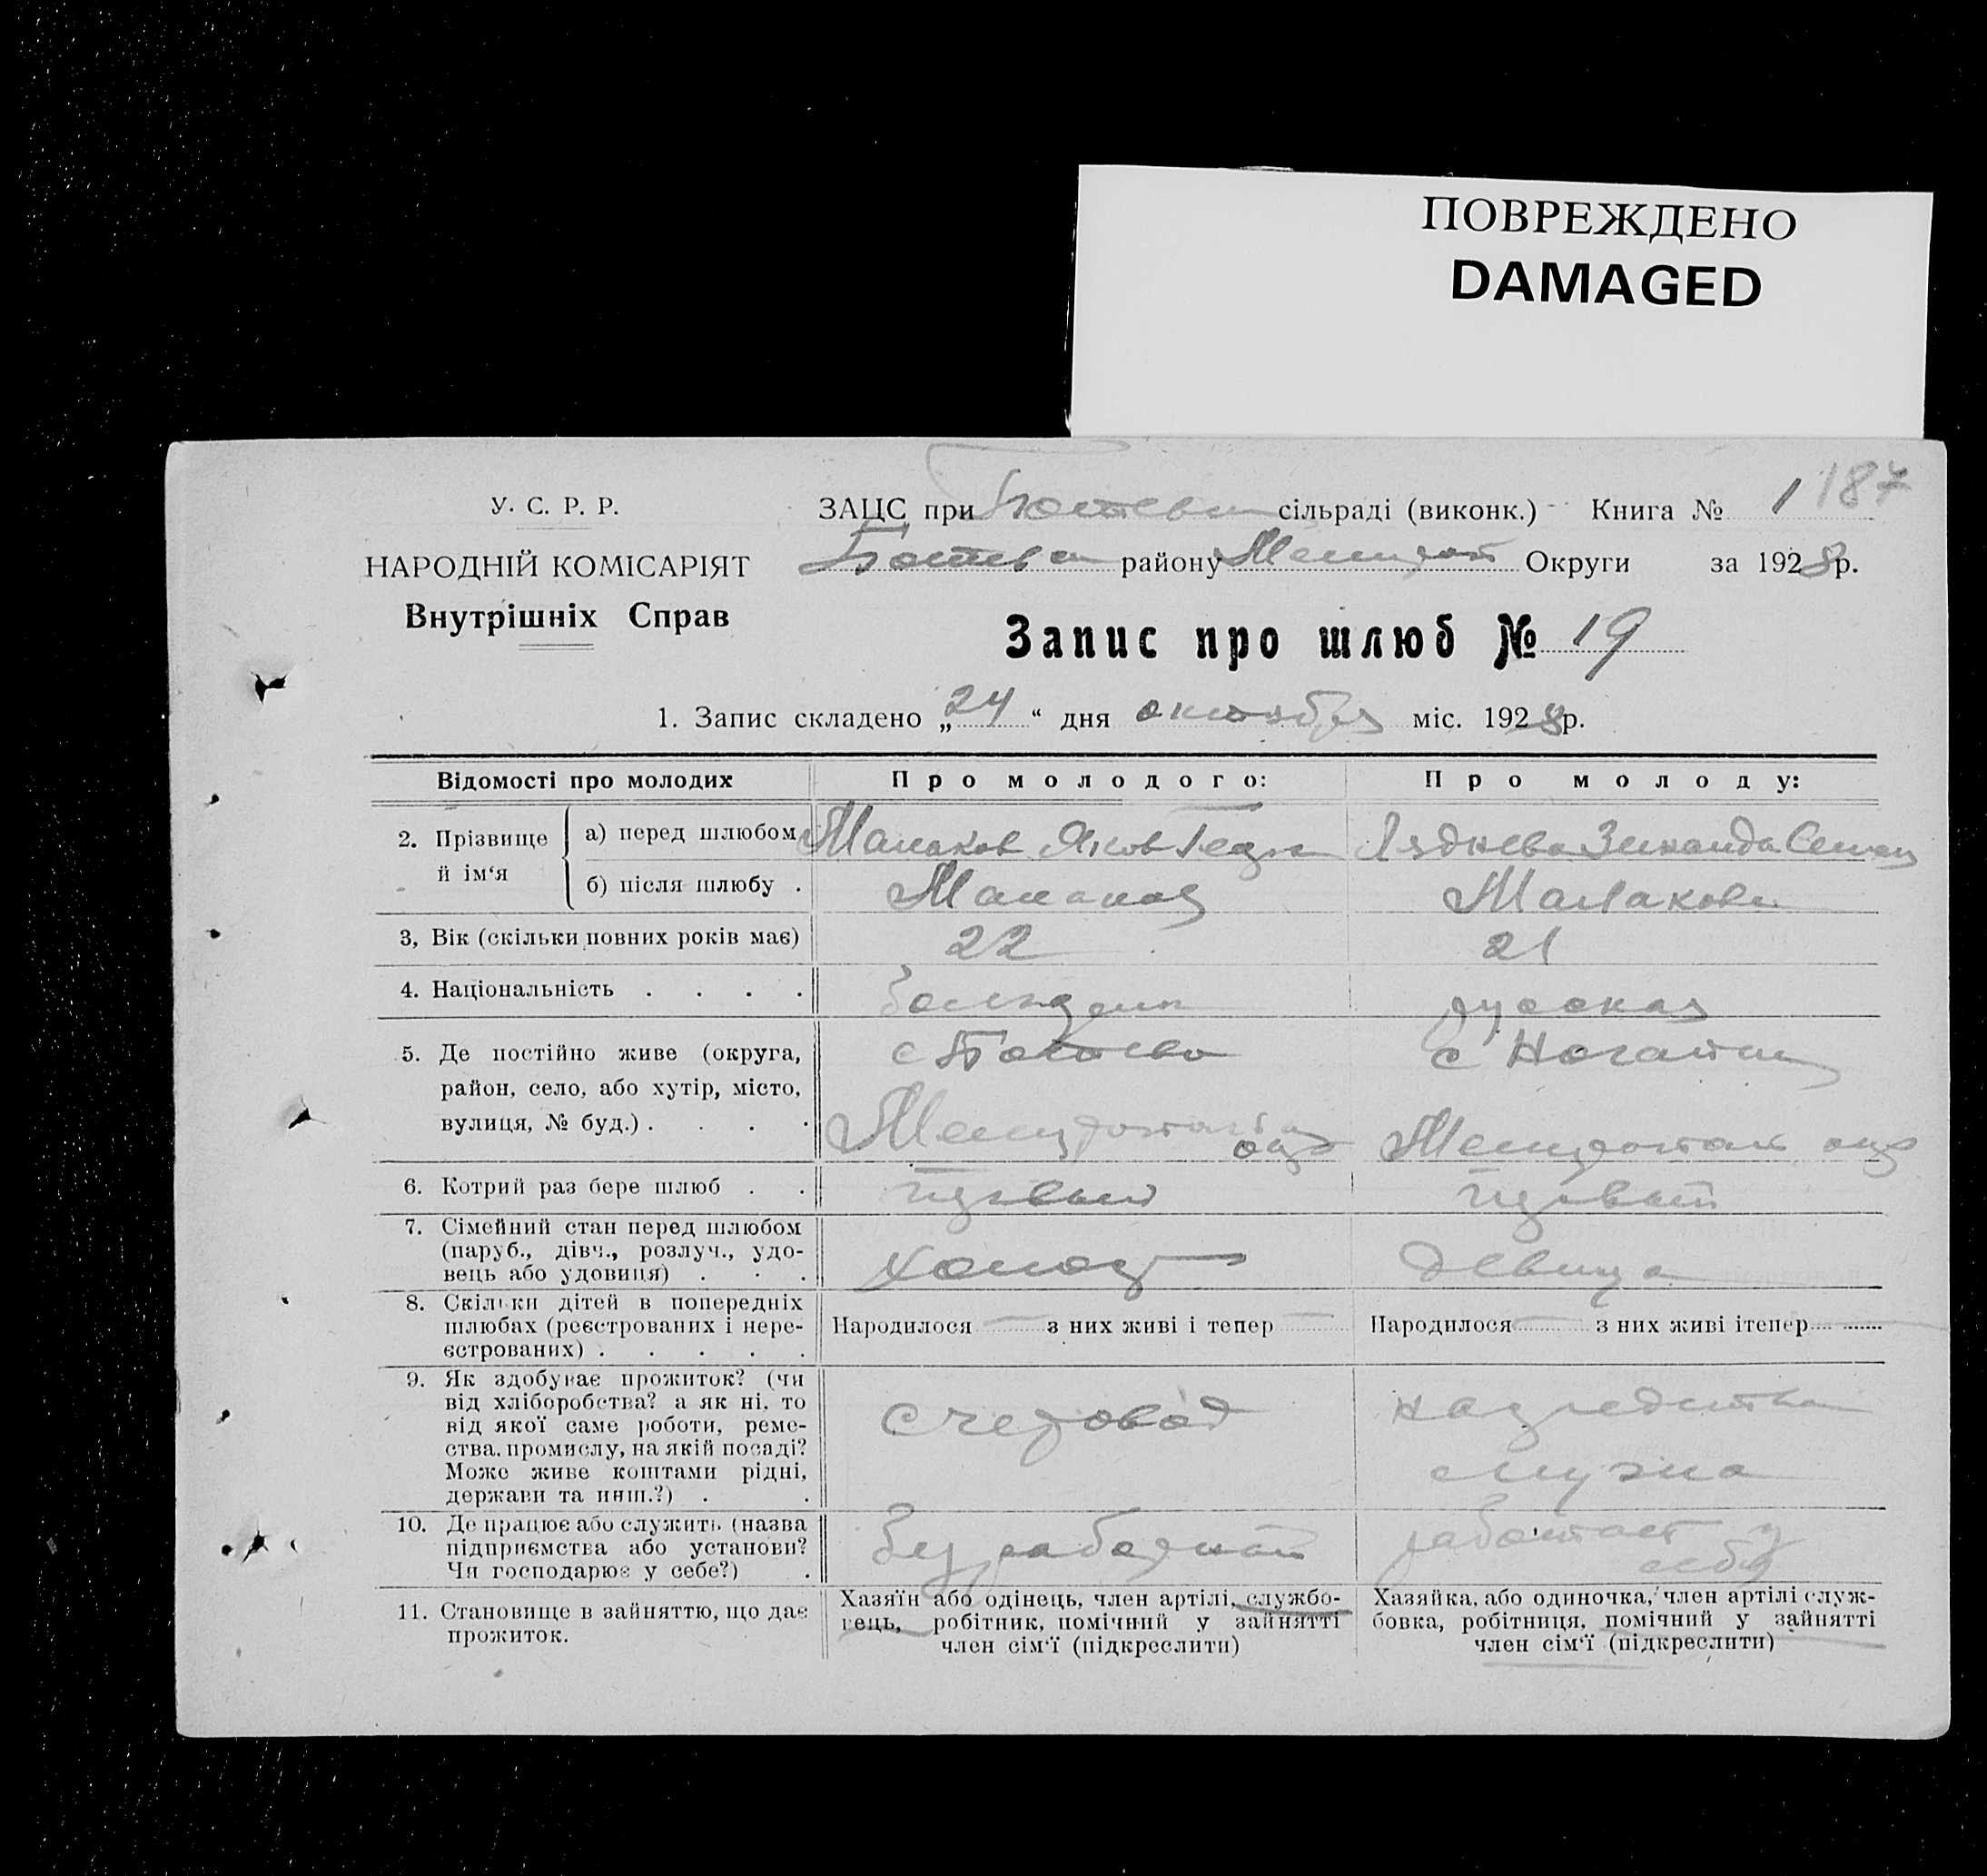 ПОВРЕЖДЕНО
DAMAGED
У. С. Р. Р.
НАРОДНІЙ КОМІСАРІЯТ
Внутрішніх Справ
ЗАЦС при сільраді (виконк.) Книга № 1 187
району Округи за 1928 р.
Запис про шлюб № 19
1. Запис складено „24“ дня октября міс. 1928 р.
Відомості про молодих Про молодого: Про молоду:
2. Прізвище й ім‘я
а) перед шлюбом Яков Зинаида
б) після шлюбу .
3, Вік (скільки повних років має) 22 21
4. Національність . . . . русская
5. Де постійно живе (округа,
район, село, або хутір, місто,
вулиця, № буд.) . . . .
6. Котрий раз бере шлюб . . первый первый
7. Сімейний стан перед шлюбом
(паруб., дівч., розлуч., удо-
вець або удовиця) . . . холост девица
8. Скільки дітей в попередніх
шлюбах (реєстрованих і нере-
єстрованих) . . . . .
Народилося з них живі і тепер Народилося з них живі ітепер
9. Як здобуває прожиток? (чи
від хліборобства? а як ні, то
від якої саме роботи, реме-
ства, промислу, на якій посаді?
Може живе коштами рідні,
держави та инш.?) . .
счетовод на средства
мужа
10. Де працює або служить (назва
підприємства або установи?
Чи господарює у себе?) .
безработный работает у
себя
11. Становище в зайняттю, що дає
прожиток.
Хазяїн або одінець, член артілі, службо-
вець, робітник, помічний у зайнятті
член сім‘ї (підкреслити)
Хазяйка, або одиночка, член артілі служ-
бовка, робітниця, помічний у зайнятті
член сім‘ї (підкреслити)